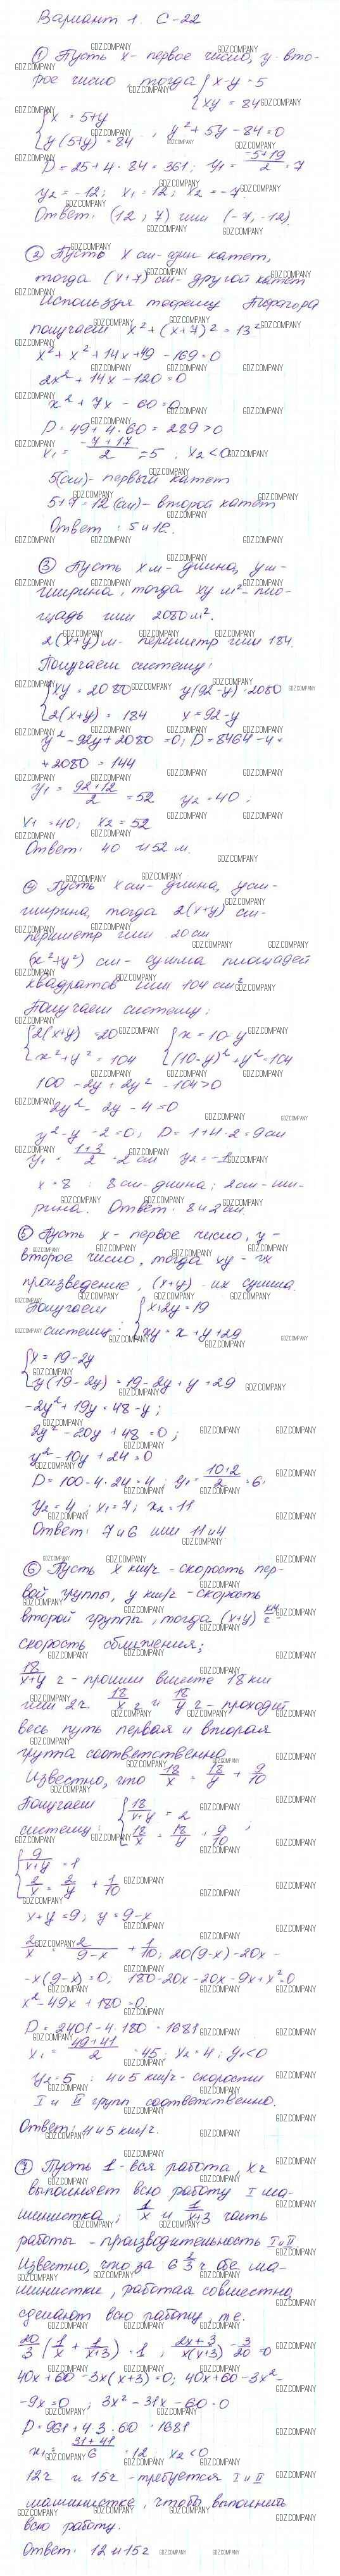 Вариант 1. С-22
① Пусть x - первое число, y - вто-
рое число тогда {x-y=5
{xy=84
{x=5+y
{y(5+y)=84 , y²+5y-84=0
D=25+4·84=361; y₁=(-5+19)/2=7
y₂=-12; x₁=12; x₂=-7.
Ответ: (12; 7) или (-7; -12).
② Пусть x см - один катет,
тогда (x+7) см - другой катет
Используя теорему Пифагора
получаем x²+(x+7)²=13²
x²+x²+14x+49-169=0
2x²+14x-120=0
x²+7x-60=0
D=49+4·60=289>0
x₁=(-7+17)/2=5; x₂<0
5(см) - первый катет
5+7=12(см) - второй катет
Ответ: 5 и 12.
③ Пусть x м - длина, y м -
ширина, тогда xy м² - пло-
щадь или 2080 м².
2(x+y) м - периметр или 184.
Получаем систему:
{xy=2080 y(92-y)=2080
{2(x+y)=184 x=92-y
y²-92y+2080=0; D=8464-4×
×2080=144
y₁=(92+12)/2=52 y₂=40;
x₁=40; x₂=52
Ответ: 40 и 52 м.
④ Пусть x см - длина, y см -
ширина, тогда 2(x+y) см -
периметр или 20 см
(x²+y²) см - сумма площадей
квадратов или 104 см².
Получаем систему:
{2(x+y)=20 {x=10-y
{x²+y²=104 {(10-y)²+y²=104
100-2y+2y²-104>0
2y²-2y-4=0
y²-y-2=0; D=1+4·2=9 см
y₁=(1+3)/2=2 см y₂=-1
x=8 : 8 см - длина; 2 см - ши-
рина. Ответ: 8 и 2 см.
⑤ Пусть x - первое число, y -
второе число, тогда xy - их
произведение, (x+y) - их сумма.
Получаем {x+2y=19
систему: {xy=x+y+29
{x=19-2y
{y(19-2y)=19-2y+y+29
-2y²+19y=48-y;
2y²-20y+48=0;
y²-10y+24=0
D=100-4·24=4; y₁=(10+2)/2=6;
y₂=4; x₁=7; x₂=11
Ответ: 7 и 6 или 11 и 4.
⑥ Пусть x км/ч - скорость пер-
вой группы, y км/ч - скорость
второй группы, тогда (x+y) км/ч -
скорость сближения;
18/(x+y) ч - прошли вместе 18 км
или 2 ч. 18/x ч и 18/y ч - проходит
весь путь первая и вторая
группа соответственно
Известно, что 18/x = 18/y + 9/10
Получаем {18/(x+y)=2
систему: {18/x=18/y+9/10 ,
{9/(x+y)=1
{2/x=2/y+1/10
x+y=9; y=9-x
2/x=2/(9-x)+1/10; 20(9-x)-20x-
-x(9-x)=0; 180-20x-20x-9x+x²=0
x²-49x+180=0
D=2401-4·180=1681
x₁=(49+41)/2=45; x₂=4; y₁<0
y₂=5 : 4 и 5 км/ч - скорости
I и II групп соответственно.
Ответ: 4 и 5 км/ч.
⑦ Пусть 1 - вся работа, x ч
выполняет всю работу I ма-
шинистка, 1/x и 1/(x+3) часть
работы - производительность I и II
Известно, что за 6 2/3 ч обе ма-
шинистки, работая совместно,
сделают всю работу, т.е.
20/3 (1/x+1/(x+3))=1 ; (2x+3)/(x(x+3))-3/20=0
40x+60-3x(x+3)=0; 40x+60-3x²-
-9x=0 ; 3x²-31x-60=0
D=961+4·3·60=1681
x₁=(31+41)/6=12; x₂<0
12 ч и 15 ч - требуется I и II
машинистке, чтобы выполнить
всю работу.
Ответ: 12 и 15 ч
GDZ.COMPANY